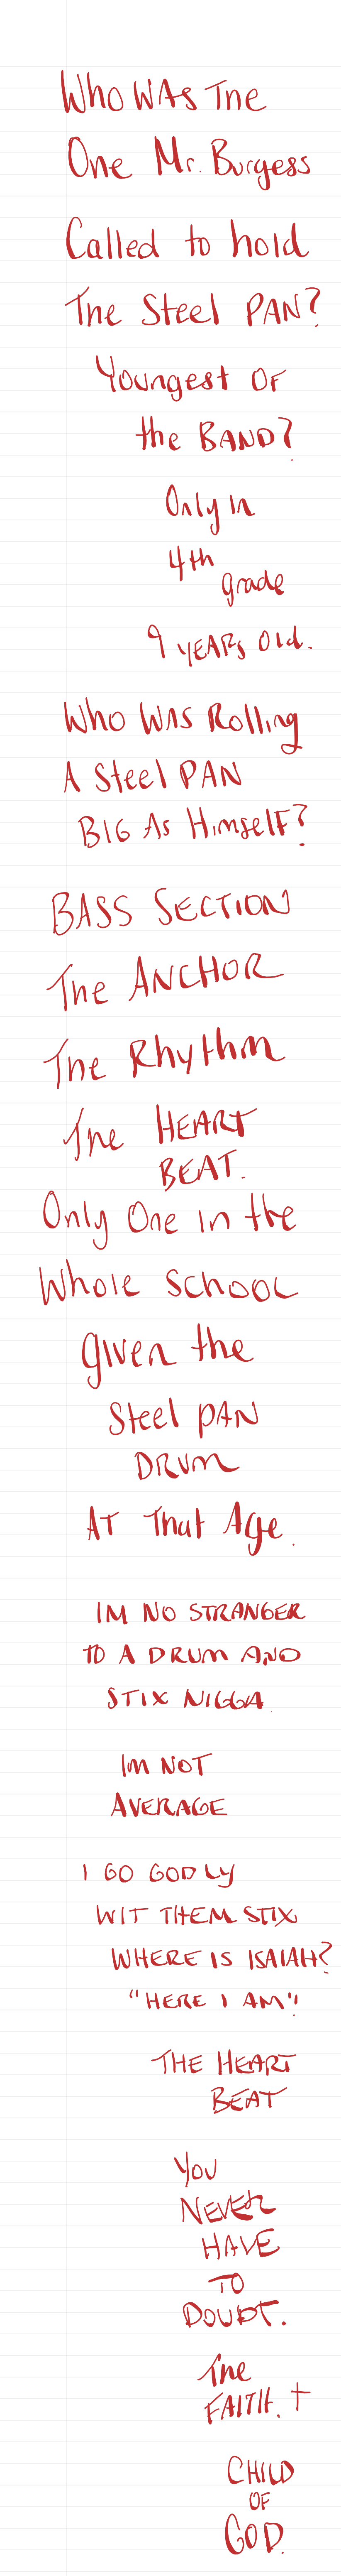 Who WAS The
One Mr. Burgess
Called to hold
The Steel PAN?
Youngest OF
the BAND?
Only in
4th
grade
9 YEARS Old.
Who WAS Rolling
A Steel PAN
BIG As HimselF?
BASS SECTION
The ANCHOR
The Rhythm
The HEART
BEAT.
Only One in the
Whole School
given the
Steel PAN
DRUM
AT That Age.
IM NO STRANGER
TO A DRUM AND
STIX NIGGA.
IM NOT
AVERAGE
I GO GODLY
WIT THEM STIX
WHERE IS ISAIAH?
"HERE I AM"!
THE HEART
BEAT
YOU
NEVER
HAVE
TO
DOUBT.
The
FAITH. †
CHILD
OF
GOD.